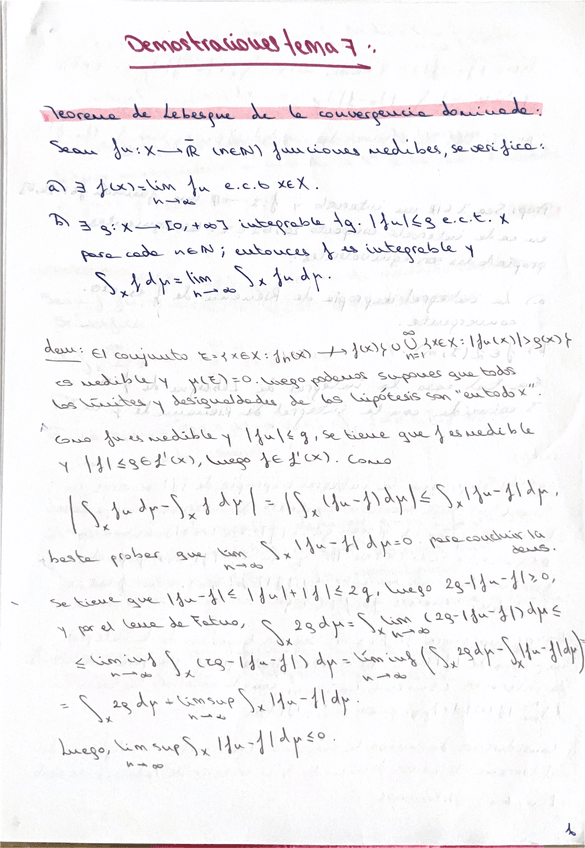 Demostraciones tema 7:
Teorema de Lebesgue de la convergencia dominada:
Sean fn: X → R̄ (n∈N) funciones medibles, se verifica:
a) ∃ f(x) = lim n→∞ fn e.c.t x∈X.
b) ∃ g: X → [0,+∞] integrable tq. |fn| ≤ g e.c.t. X
para cada n∈N; entonces f es integrable y
∫_X f dμ = lim n→∞ ∫_X fn dμ.
dem: El conjunto E = {x∈X: fn(x) ↛ f(x)} ∪ ⋃_{n=1}^∞ {x∈X: |fn(x)| > g(x)}
es medible y μ(E)=0. Luego podemos suponer que todos
los límites y desigualdades de las hipótesis son "en todo X".
Como fn es medible y |fn| ≤ g, se tiene que f es medible
y |f| ≤ g ∈ L¹(X), luego f ∈ L¹(X). Como
|∫_X fn dμ - ∫_X f dμ| = |∫_X (fn-f) dμ| ≤ ∫_X |fn-f| dμ,
basta probar que lim n→∞ ∫_X |fn-f| dμ = 0 para concluir la
dems.
Se tiene que |fn-f| ≤ |fn|+|f| ≤ 2g, luego 2g-|fn-f| ≥ 0,
y por el lema de Fatou, ∫_X 2g dμ = ∫_X lim n→∞ (2g-|fn-f|) dμ ≤
≤ lim inf n→∞ ∫_X (2g-|fn-f|) dμ = lim inf n→∞ (∫_X 2g dμ - ∫_X |fn-f| dμ)
= ∫_X 2g dμ + lim sup n→∞ ∫_X |fn-f| dμ.
Luego, lim sup n→∞ ∫_X |fn-f| dμ ≤ 0.